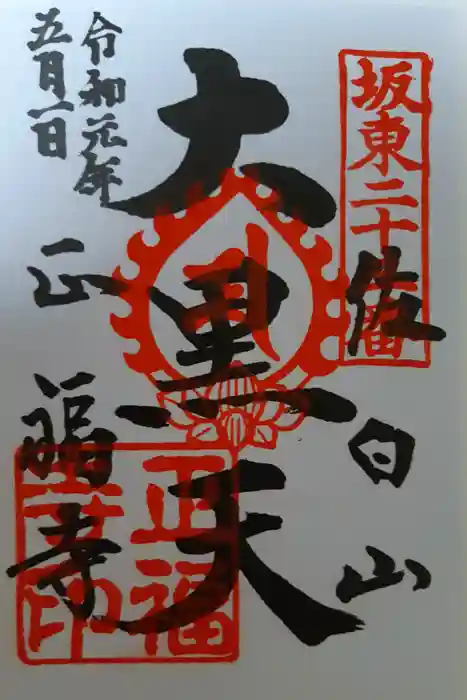 坂東二十三番
佐白山
大黒天
令和元年
五月一日
正福寺
正福
寺印